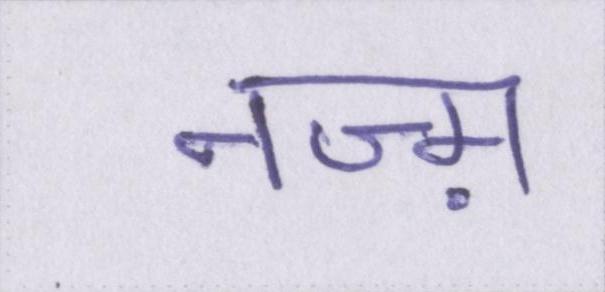 नज्म़